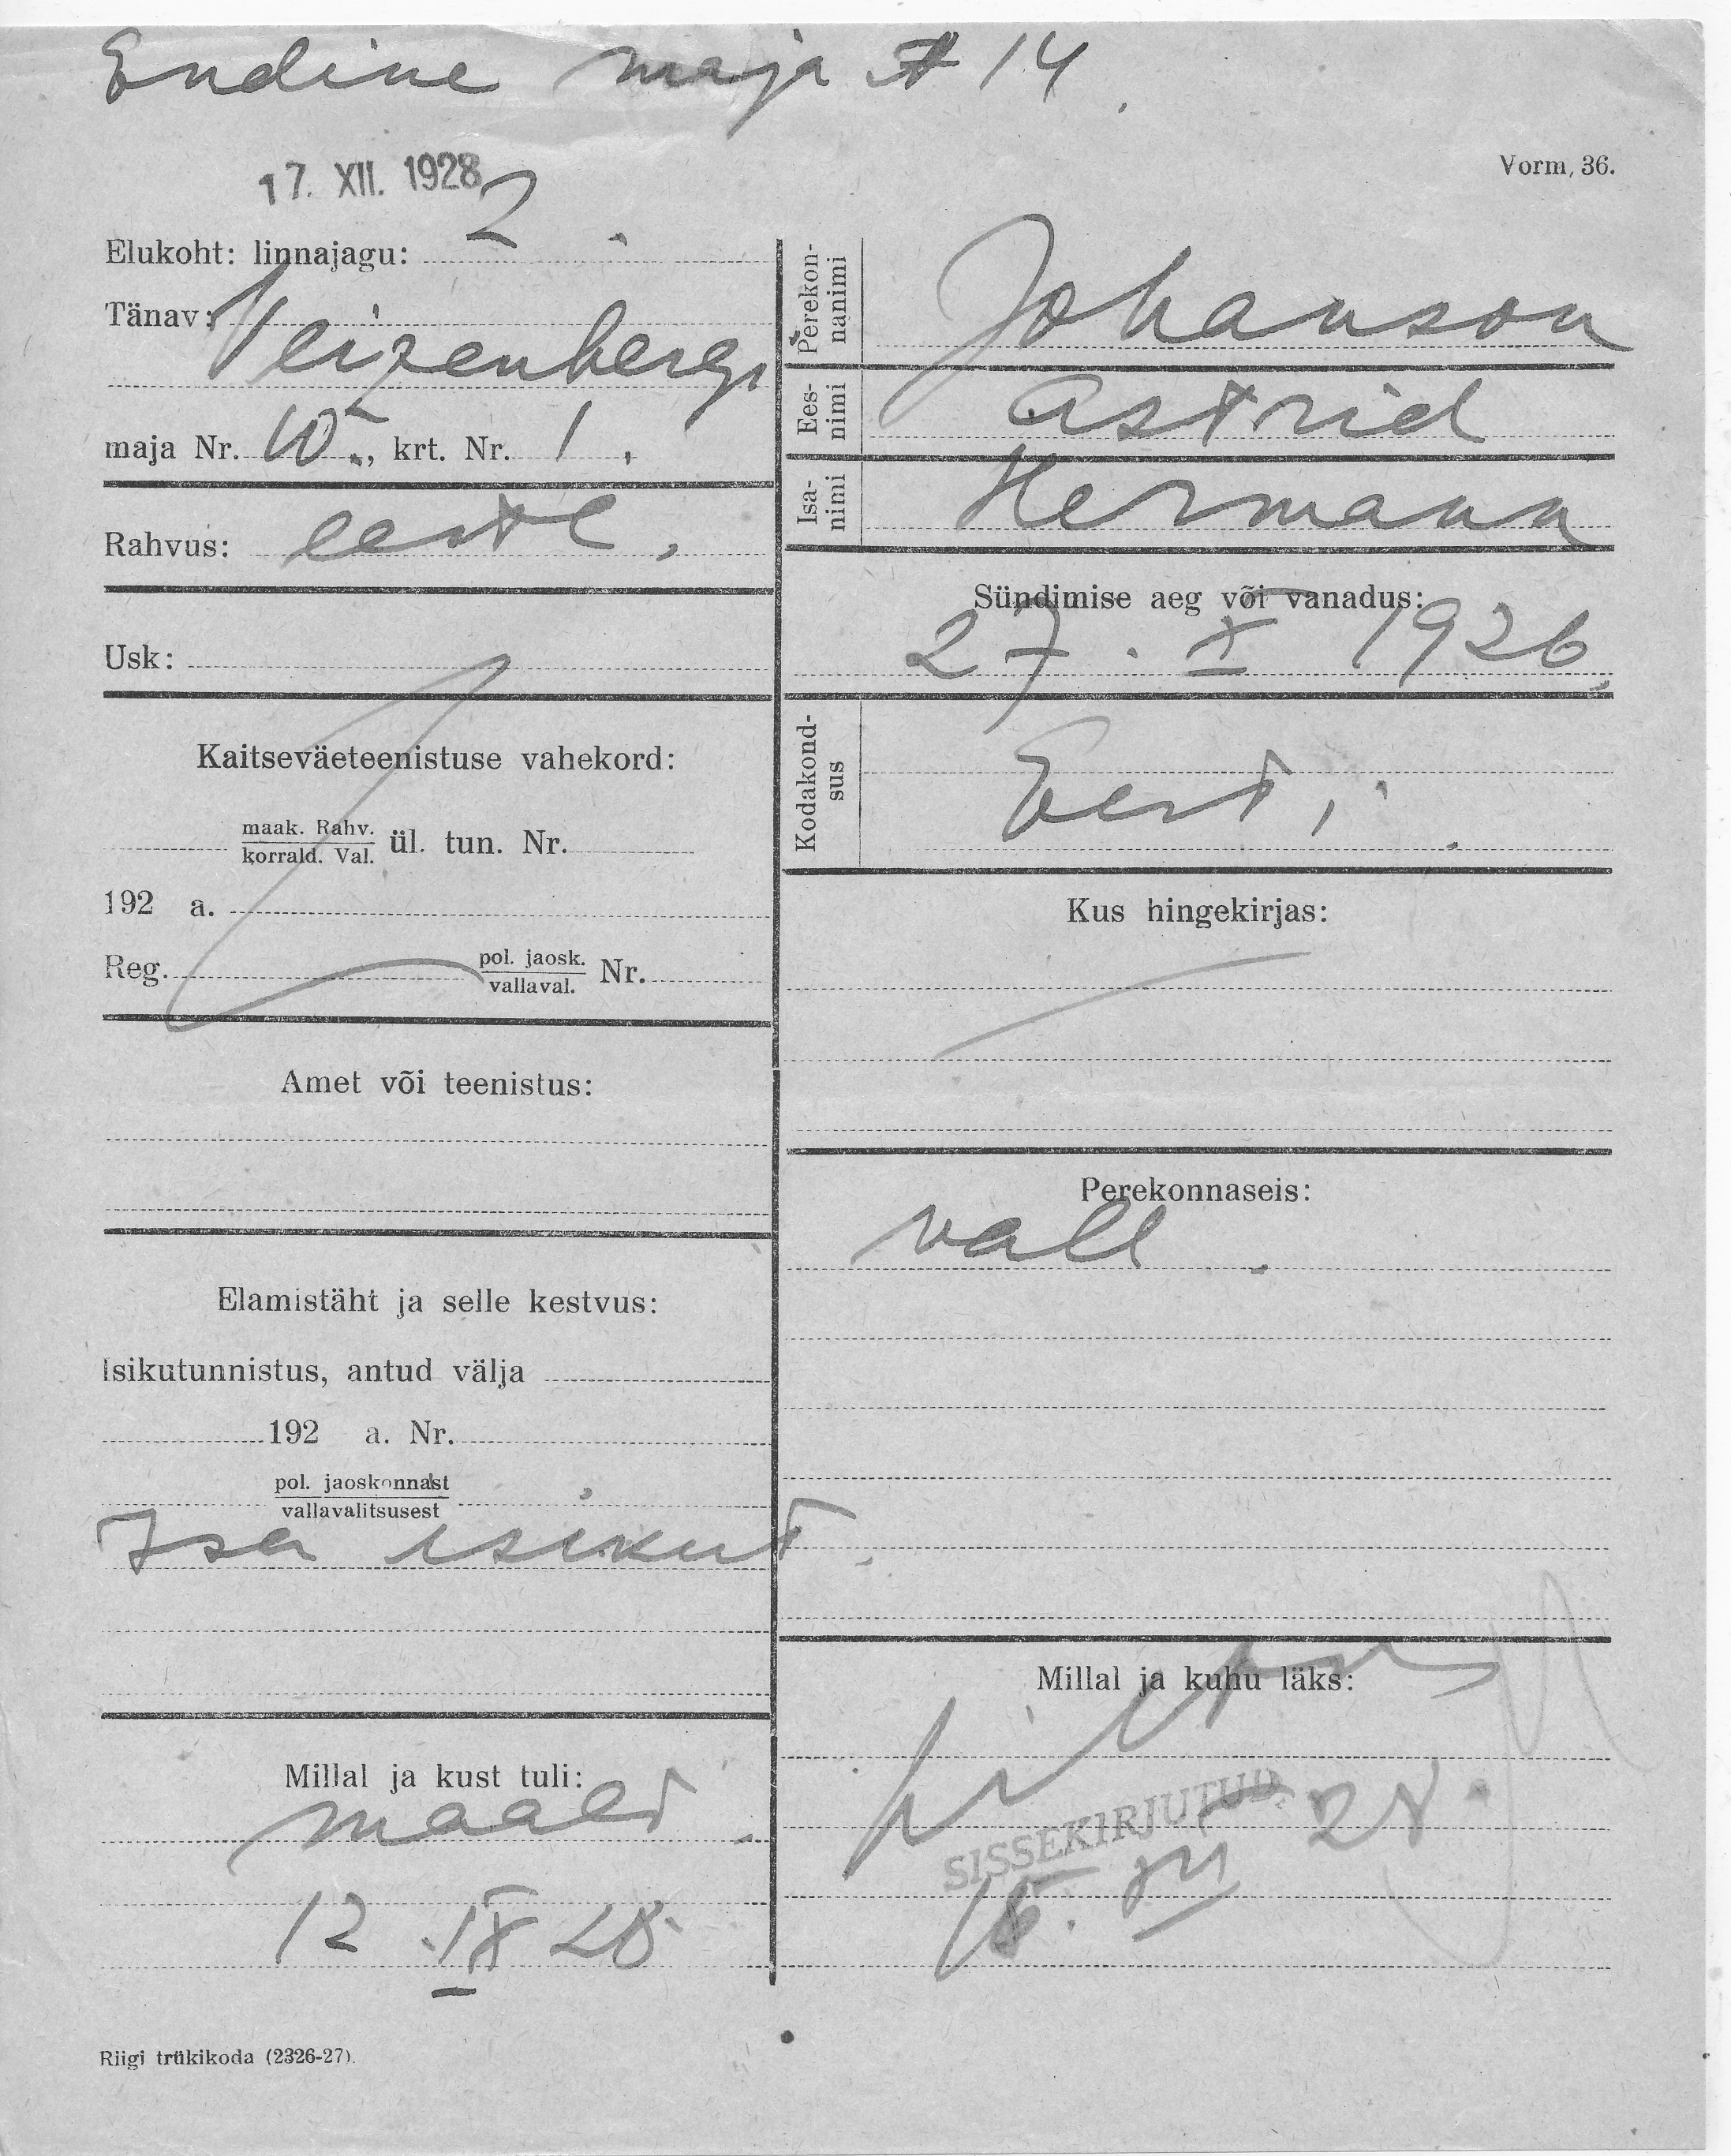 Endine maja № 14.
17. XII. 1928
Vorm, 36.
Elukoht: linnajagu: 2.
Tänav: Veizenbergi
maja Nr. 10., krt. Nr. 1.
Rahvus: eesti.
Usk:
Kaitseväeteenistuse vahekord:
maak. Rahv.
korrald. Val. ül. tun. Nr.
192 a.
Reg. pol. jaosk.
vallaval. Nr.
Amet või teenistus:
Elamistäht ja selle kestvus:
Isikutunnistus, antud välja
192 a. Nr.
pol. jaoskonnast
vallavalitsusest
Isa isikut.
Millal ja kust tuli:
maalt.
12. IX 28.
Perekonnanimi Johanson
Eesnimi Astrid
Isanimi Hermann
Sündimise aeg või vanadus:
27. X 1926.
Kodakondsus Eesti.
Kus hingekirjas:
Perekonnaseis:
vall.
Millal ja kuhu läks:
SISSEKIRJUTUD.
28.
Riigi trükikoda (2326-27).